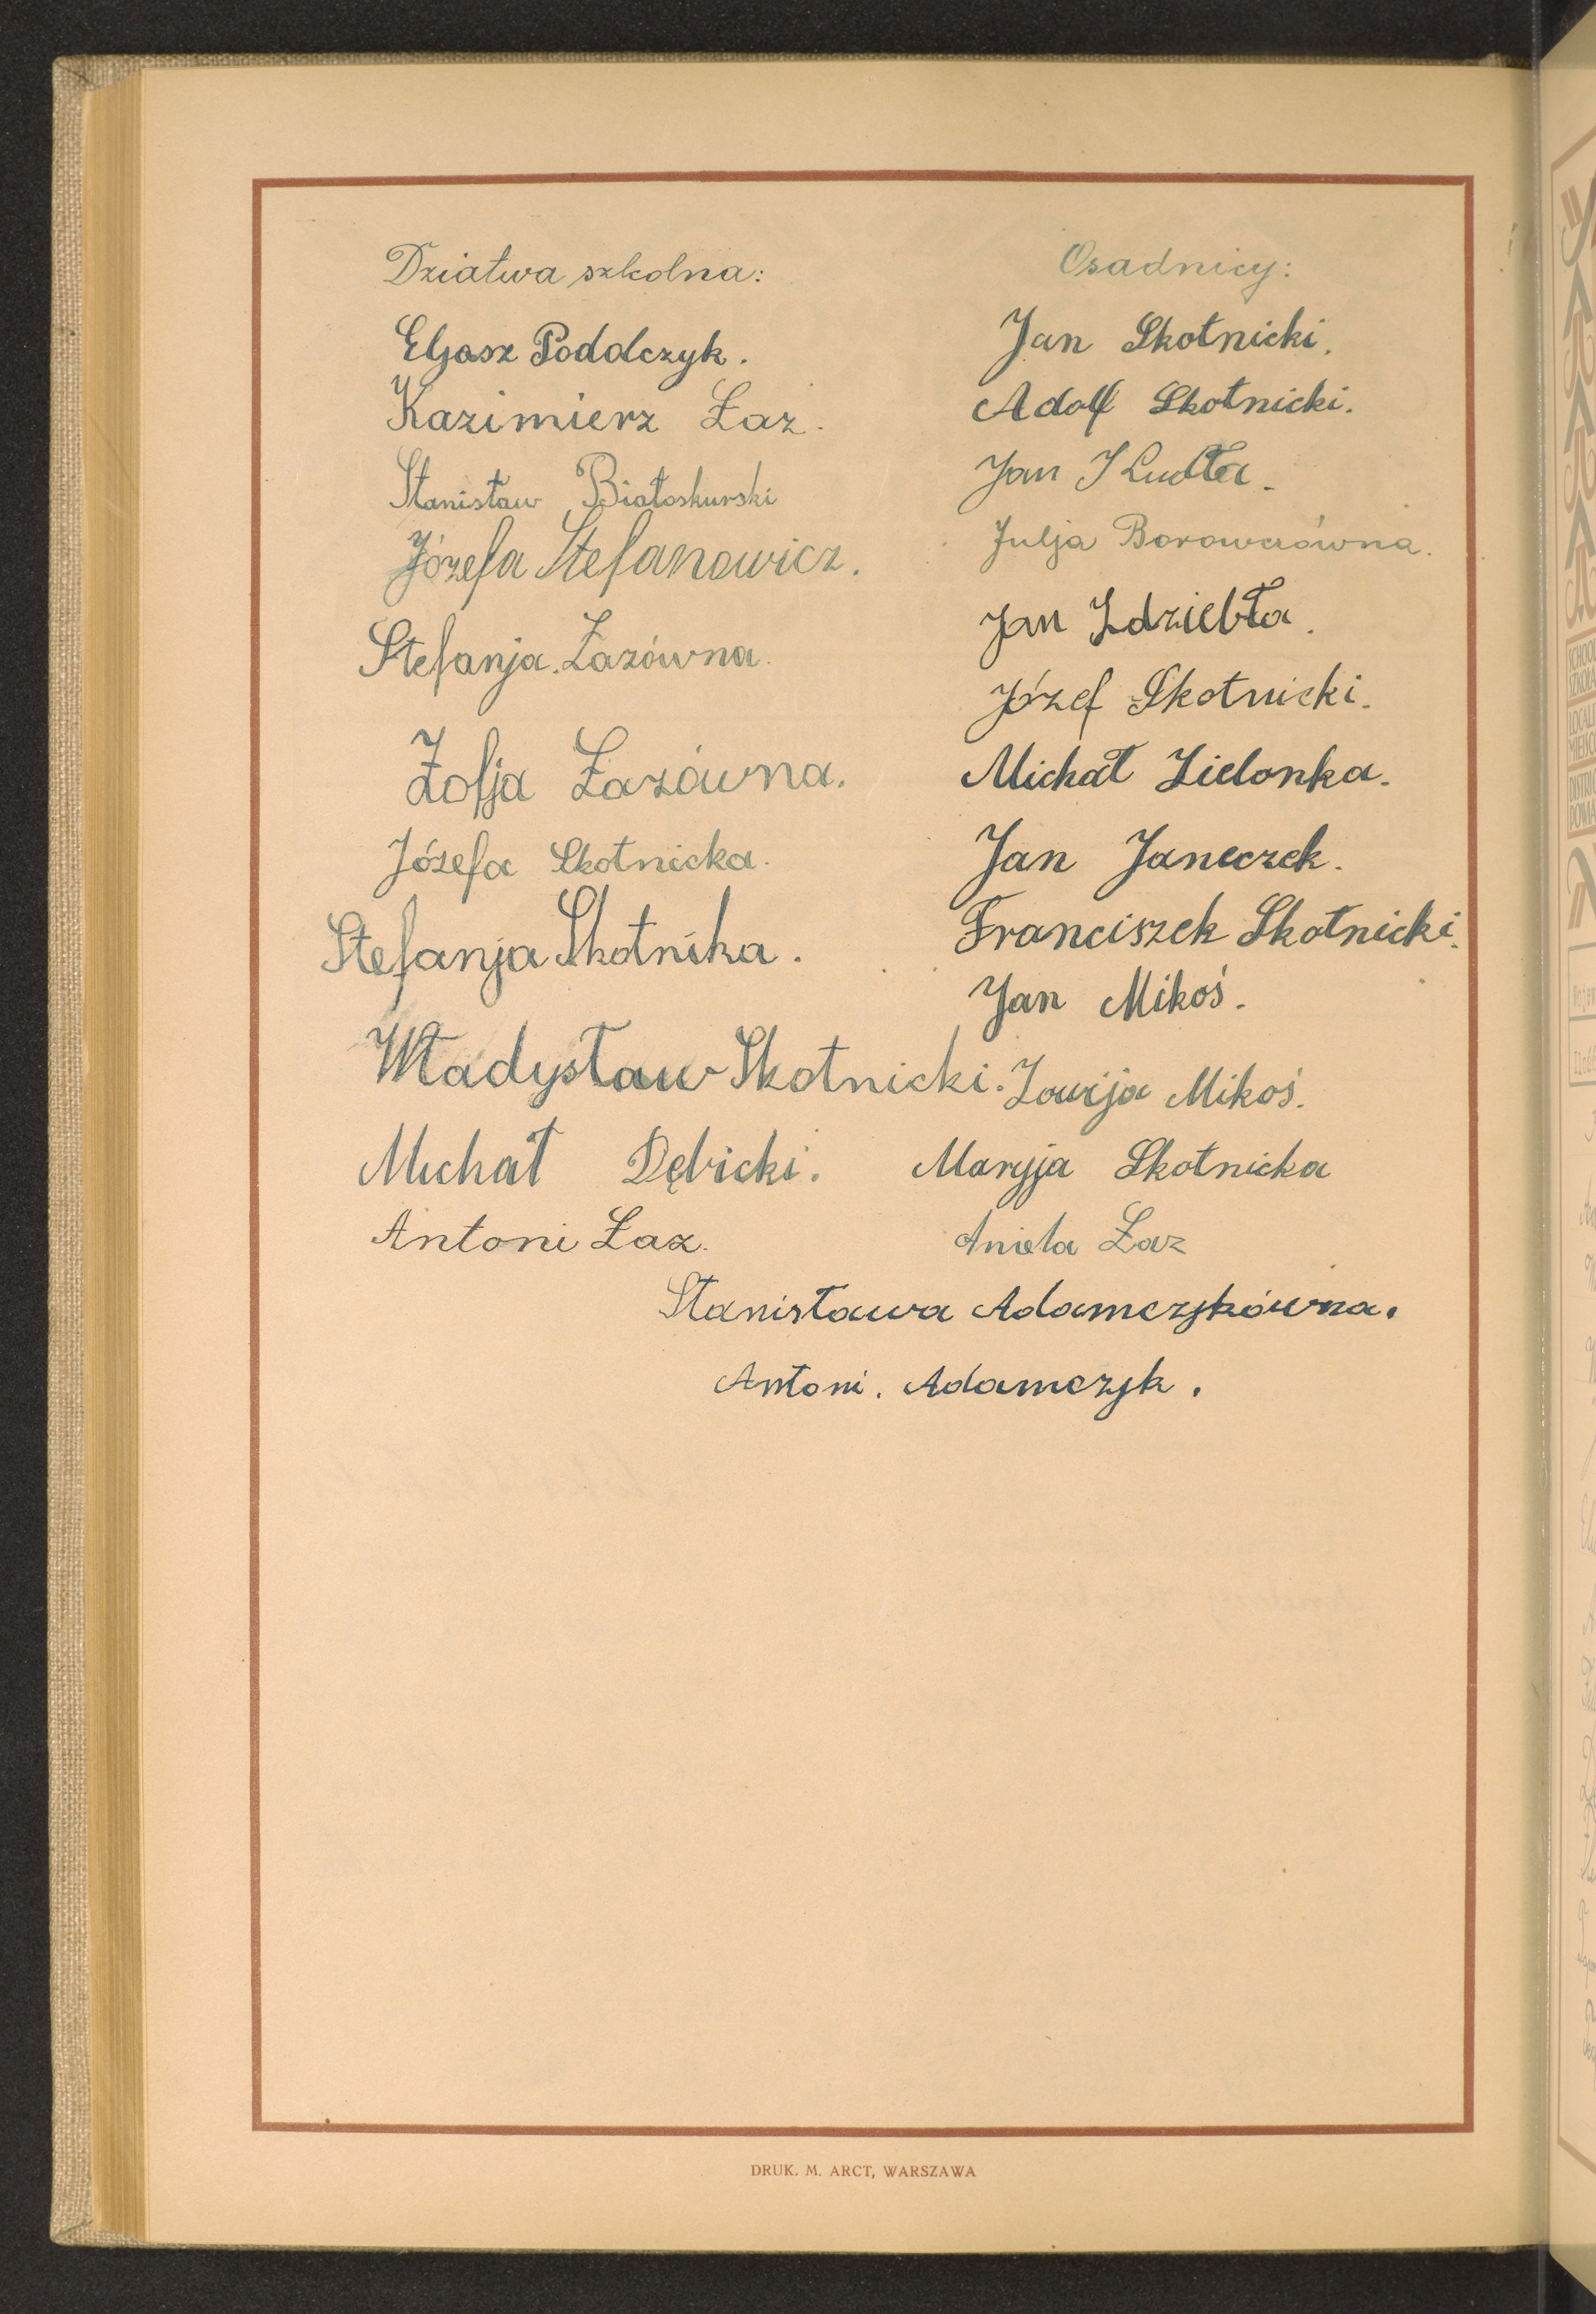 Dziatwa szkolna:
Eljasz Poddczyk.
Kazimierz Łaz.
Stanisław Białoskurski
Józefa Stefanowicz.
Stefanja Łazówna.
Zofja Łazówna.
Józefa Skotnicka.
Stefanja Skotnika.
Władysław Skotnicki.
Michał Dębicki.
Antoni Łaz.
Osadnicy:
Jan Skotnicki.
Adolf Skotnicki.
Jan
Julja
Jan Zdziebła.
Józef Skotnicki.
Michał Zielonka.
Jan Janeczek.
Franciszek Skotnicki.
Jan Mikoś.
Mikoś.
Maryja Skotnicka
Aniela Łaz
Stanisława Adamczykówna.
Antoni. Adamczyk.
DRUK. M. ARCT, WARSZAWA